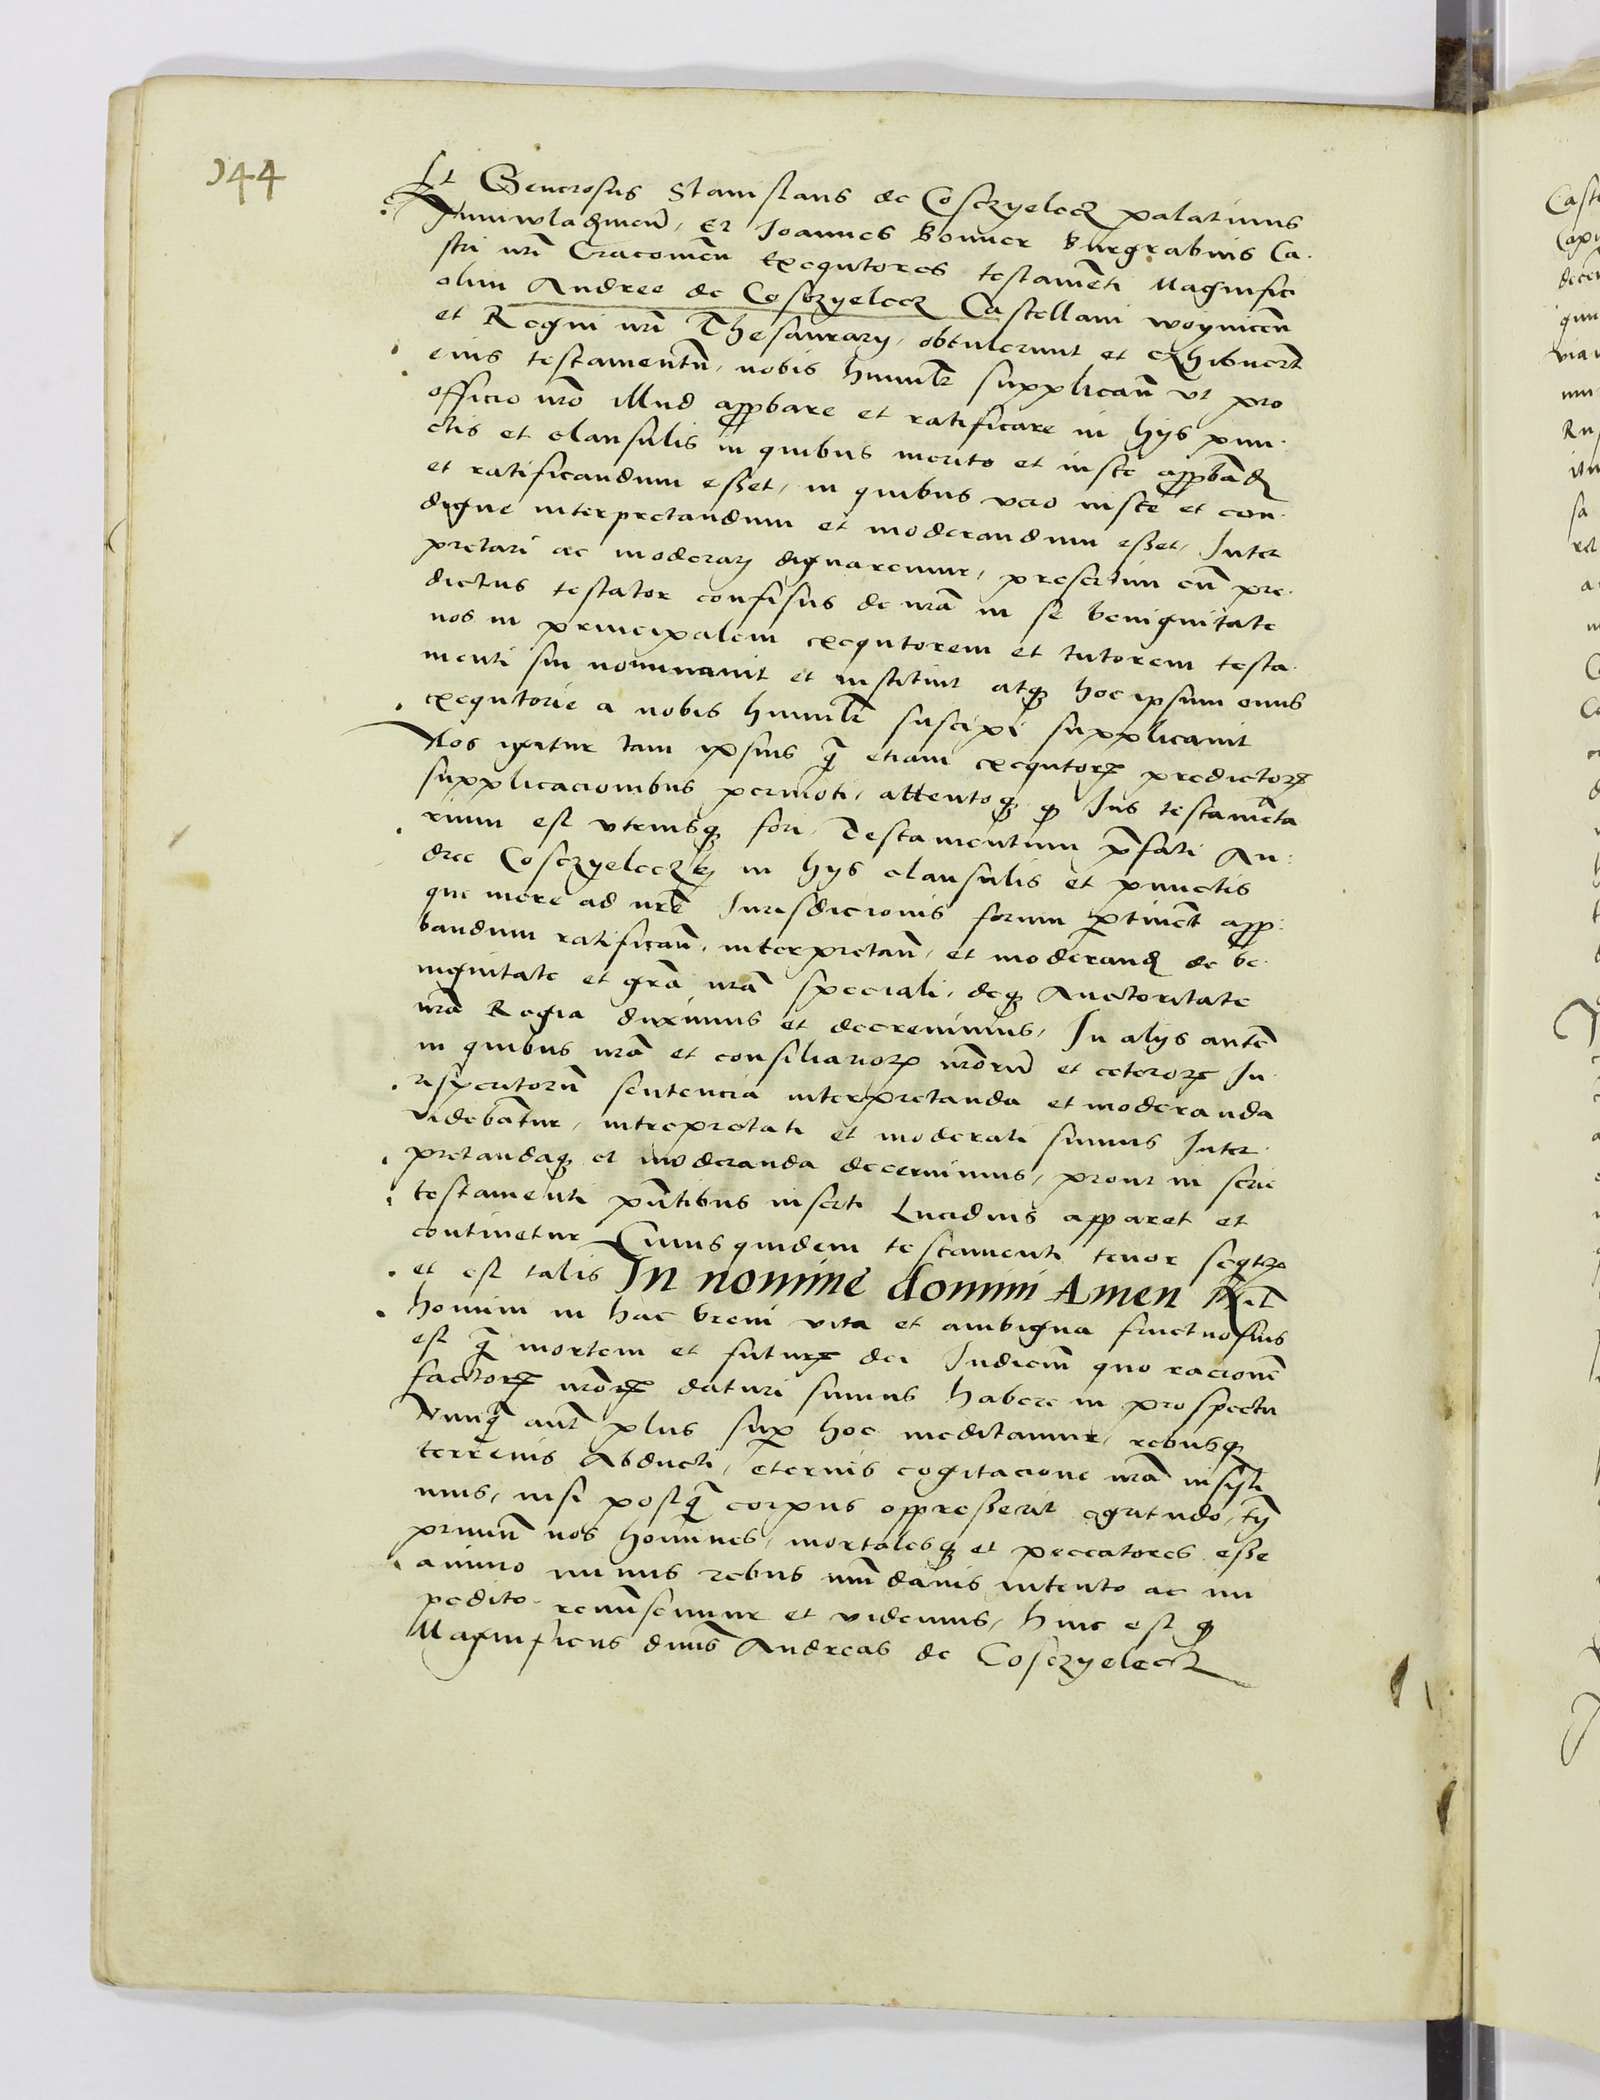 144
Et Generosus Stanislaus de Cosczyelecz palatinus
Juniwladimien̄, Et Joannes Bonner Burgrabius Ca.
stri nr̄i Cracouien̄ Exequtores testamēti Magnifici
olim Andree de Cosczyelecz Castellani woynicen̄
et Regni nr̄i Thesaurarij, obtulerunt et exhibuerūt
eius testamentū, nobis humilr̄ supplican̄ vt pro
officio nr̄o illud approbare et ratificare in hijs pun.
ctis et clausulis in quibus merito et iuste approband̄
et ratificandum esset, in quibus vero iuste et con.
digne interpretandum et moderandum esset, Inter
pretari ac moderarj dignaremur, presertim cū pre.
dictus testator confisus de nr̄a in se benignitate
nos in principalem exequtorem et tutorem testa.
menti sui nominauit et instituit atq̃ hoc ipsum onus
exequtorie a nobis humilr̄ suscipi supplicauit
Nos igitur tam ipsius q̃ etiam exequtorꝝ predictorꝝ
supplicacionibus permoti, attentoq̃ ꝙ Jus testamēta
rium est vtriusq̃ fori, Testamentum p̄fati An:
dree Cosczyeleczkj in hijs clausulis et punctis
que mere ad nr̄e Jurisdicionis forum ꝑtinēt appro:
bandum ratifican̄, interpretan̄, et moderand̄ de be.
nignitate et gr̄a nr̄a speciali, deq̃ Auctoritate
nr̄a Regia duximus et decreuimus, In alijs autē
in quibus nr̄a et consiliariorꝝ nr̄orū et ceterorꝝ Ju.
risperitorū sentencia interpretanda et moderanda
videbātur, intrepretati et moderati sumus Inter
pretandaq̃ et moderanda decernimus, prout in serie
testamenti pn̄tibus inserti Lucidius apparet et
continetur Cuius quidem testamenti tenor seqtꝛ
et est talis In nomine domini Amen Nil
homini in hac breui vita et ambigua fructuosius
est q̃ mortem et futurꝝ dei Judiciū quo racionē
factorꝝ nr̄orꝝ daturi sumus habere in prospectu
Nunq̃ aut̄ plus suꝑ hoc meditamur, rebusq̃
terrenis Abducti, eternis cogitacione nr̄a insisti
mus, nisi postq̃ corpus oppresserit egritudo, tū
primum nos homines, mortalesq̃ et peccatores esse
animo minus rebus mūdanis intento ac im
pedito remissemur et videmus, hinc est ꝙ
Magnificus dn̄us Andreas de Cosczyelecz